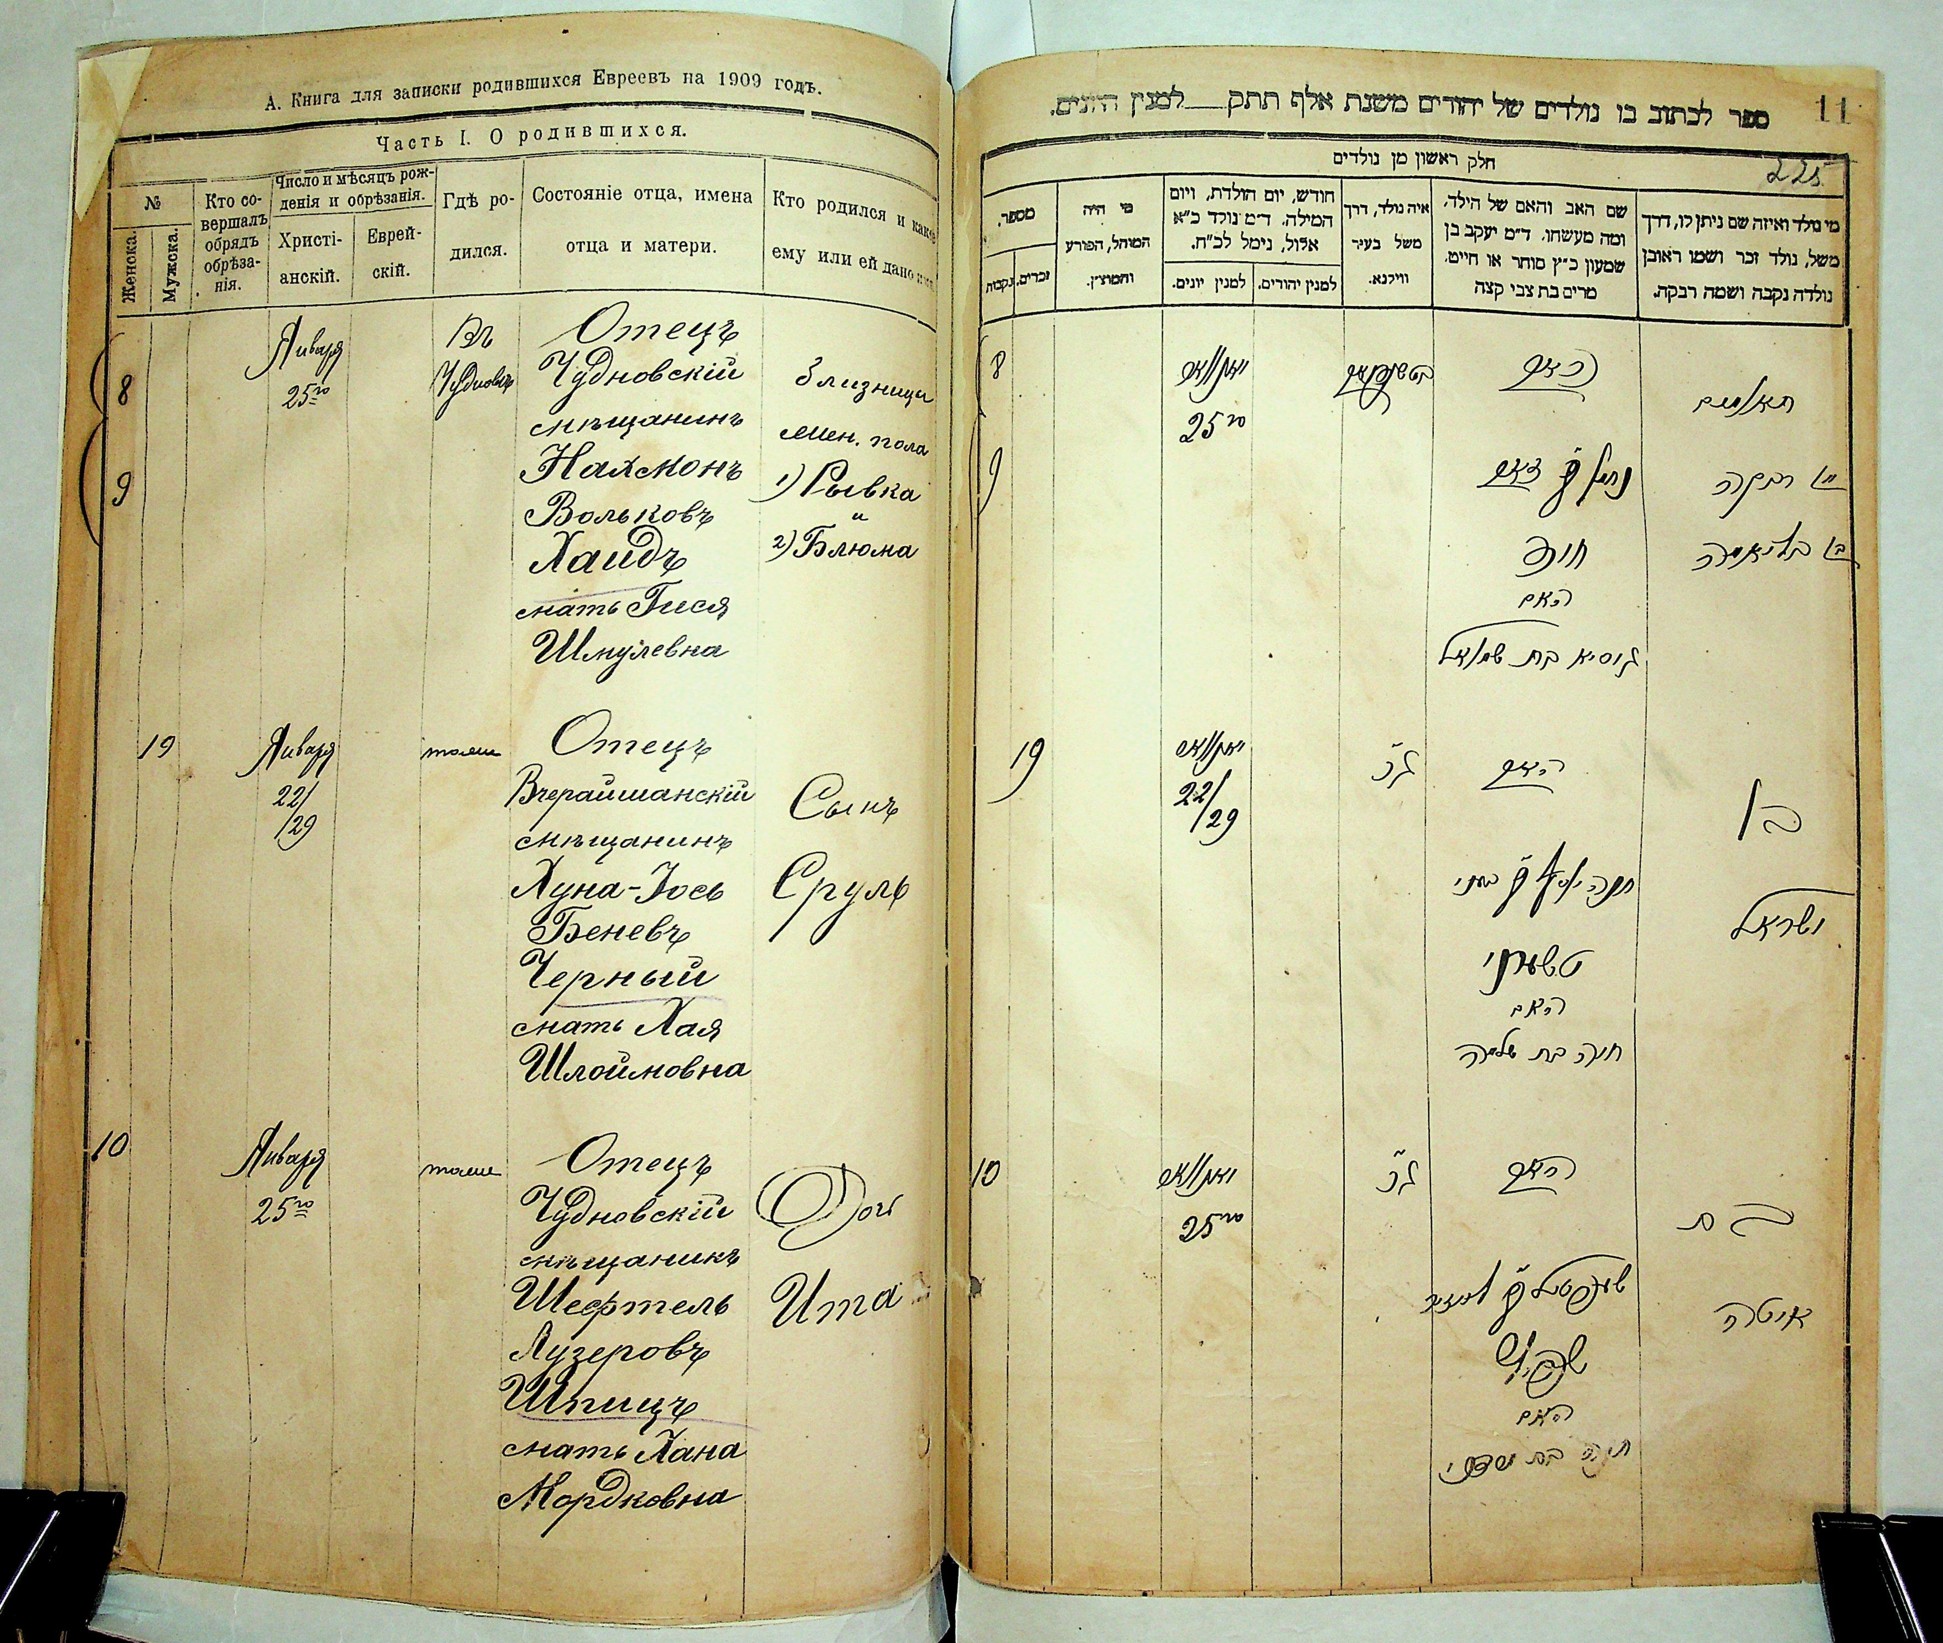 А. Книга для записки родившихся Евреевъ на 1909 годъ.
Часть I. О родившихся.
№
Женска.
Мужска.
Кто со-
вершалъ
обрядъ
обрѣза-
нія.
Число и мѣсяцъ рож-
денія и обрѣзанія.
Христі-
анскій.
Еврей-
скій.
Гдѣ ро-
дился.
Состояніе отца, имена
отца и матери.
Кто родился и какое
ему или ей дано имя.
8
9
Января
25го
Въ
Чудновѣ
Отецъ
Чудновскій
мѣщанинъ
Нахмонъ
Вольковъ
Хаидъ
мать Гися
Шмулевна
Близнецы
жен. пола
1) Рывка
и
2) Блюма
19
Января
22/
/29
тоже
Отецъ
Вчерайшанскій
мѣщанинъ
Хуна-Іось
Беневъ
Черный
мать Хая
Шлоймовна
Сынъ
Сруль
10
Января
25го
тоже
Отецъ
Чудновскій
мѣщанинъ
Шефтель
Лузеровъ
Шпицъ
мать Хана
Мордковна
Дочь
Ита
11
ספר לכתוב בו נולדים של יהודים משנת אלף תתק למנין היונים.
225
חלק ראשון מן נולדים
מי נולד ואיזה שם ניתן לו, דרך
משל, נולד זכר ושמו ראובן
נולדה נקבה ושמה רבקה.
שם האב והאם של הילד,
ומה מעשהו. ד״מ יעקב בן
שמעון כ״ץ סוחר או חייט,
מרים בת צבי קצה
איה נולד, דרך
משל בעיר
ווילנא.
חודש, יום הולדת, ויום
המילה. ד״מ נולד כ״א
אלול, נימל לכ״ח.
למנין יהודים.
למנין יונים.
מי היה
המוהל, הפורע
והמוצץ.
מספר,
זכרים,
נקבות
8
9
יאנואר
25го
האב
חייד
האם
גיסיא בת שמואל
תאומים
א רבקה
ב בליומה
19
יאנואר
22/
/29
האב
טשערני
האם
חיה בת שלמה
בן
ישראל
10
יאנואר
25го
האב
שפיץ
האם
חנה בת מרדכי
בת
איטה